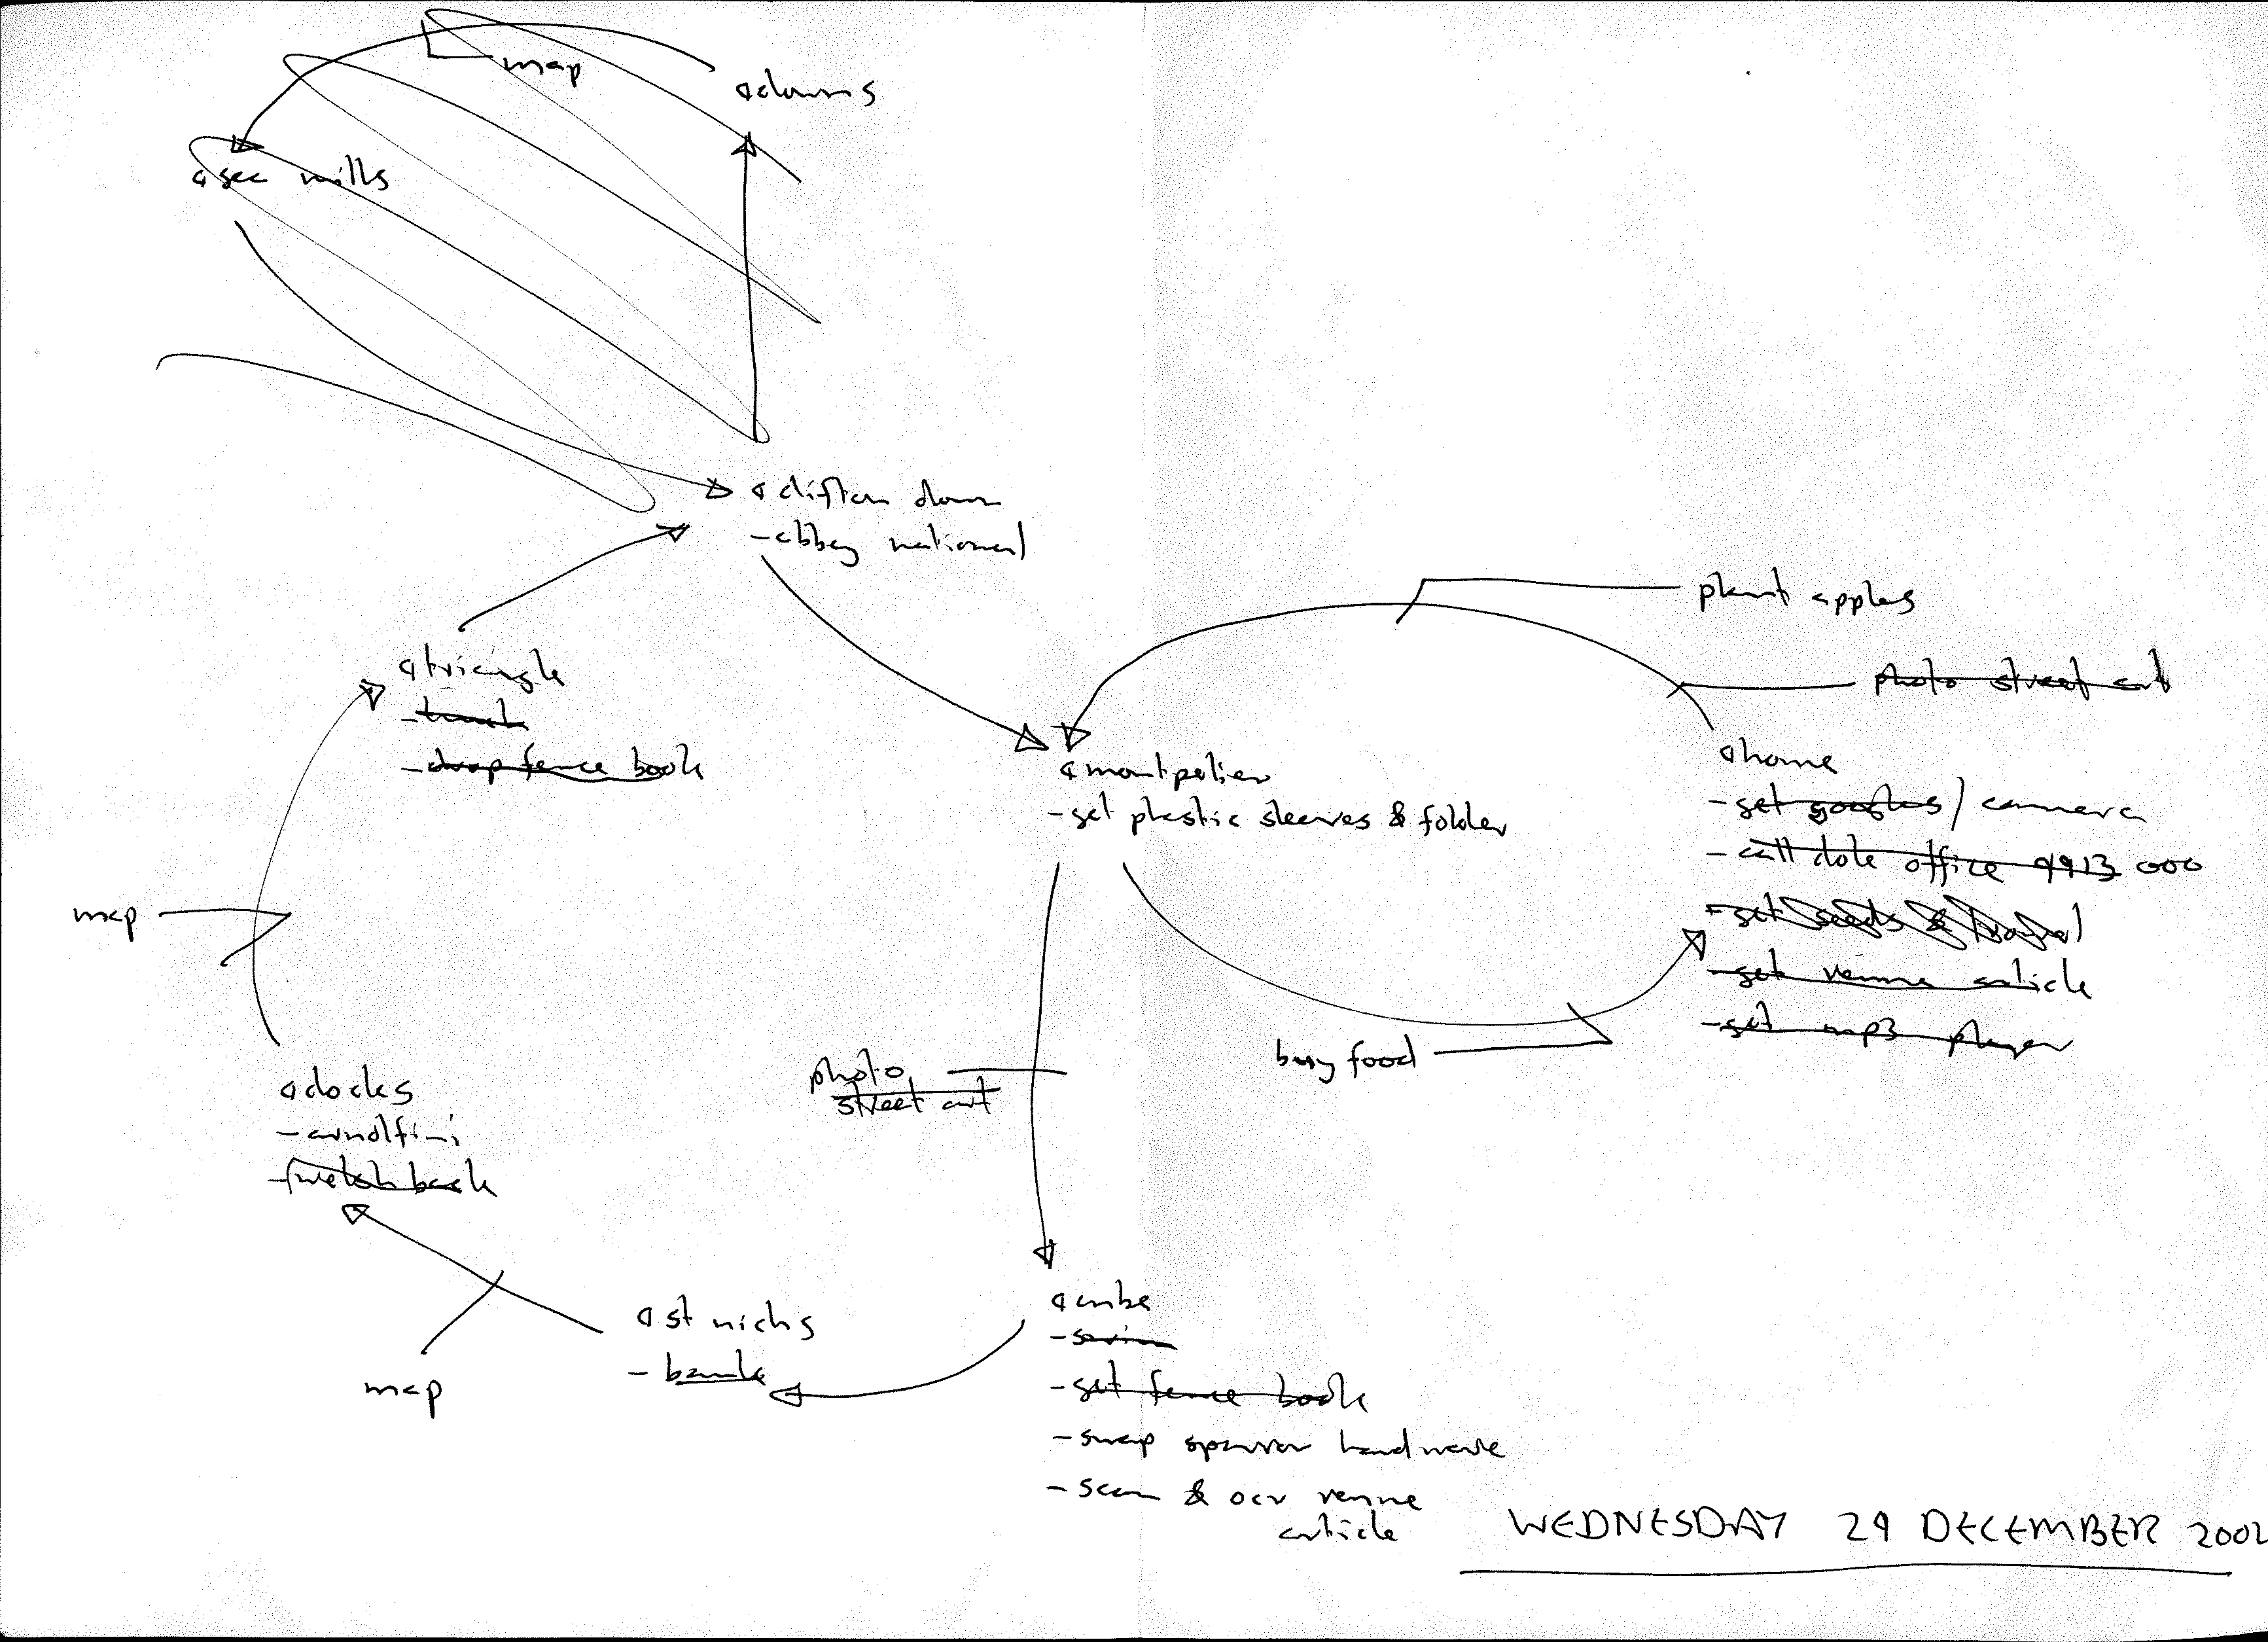 map
@downs
@sea mills
@clifton down
- abbey national
plant apples
photo street art
@triangle
- drop fence book
@montpelier
- get plastic sleeves & folder
@home
- get goggles / camera
- call dole office 9913 000
- get seeds &
- get venue article
- get mp3 player
map
buy food
photo
street art
@docks
- arnolfini
- welsh back
@st nichs
- bank
map
@cube
- get fence book
- swap sponsor hardware
- scan & ocr venue
article
WEDNESDAY 29 DECEMBER 2002